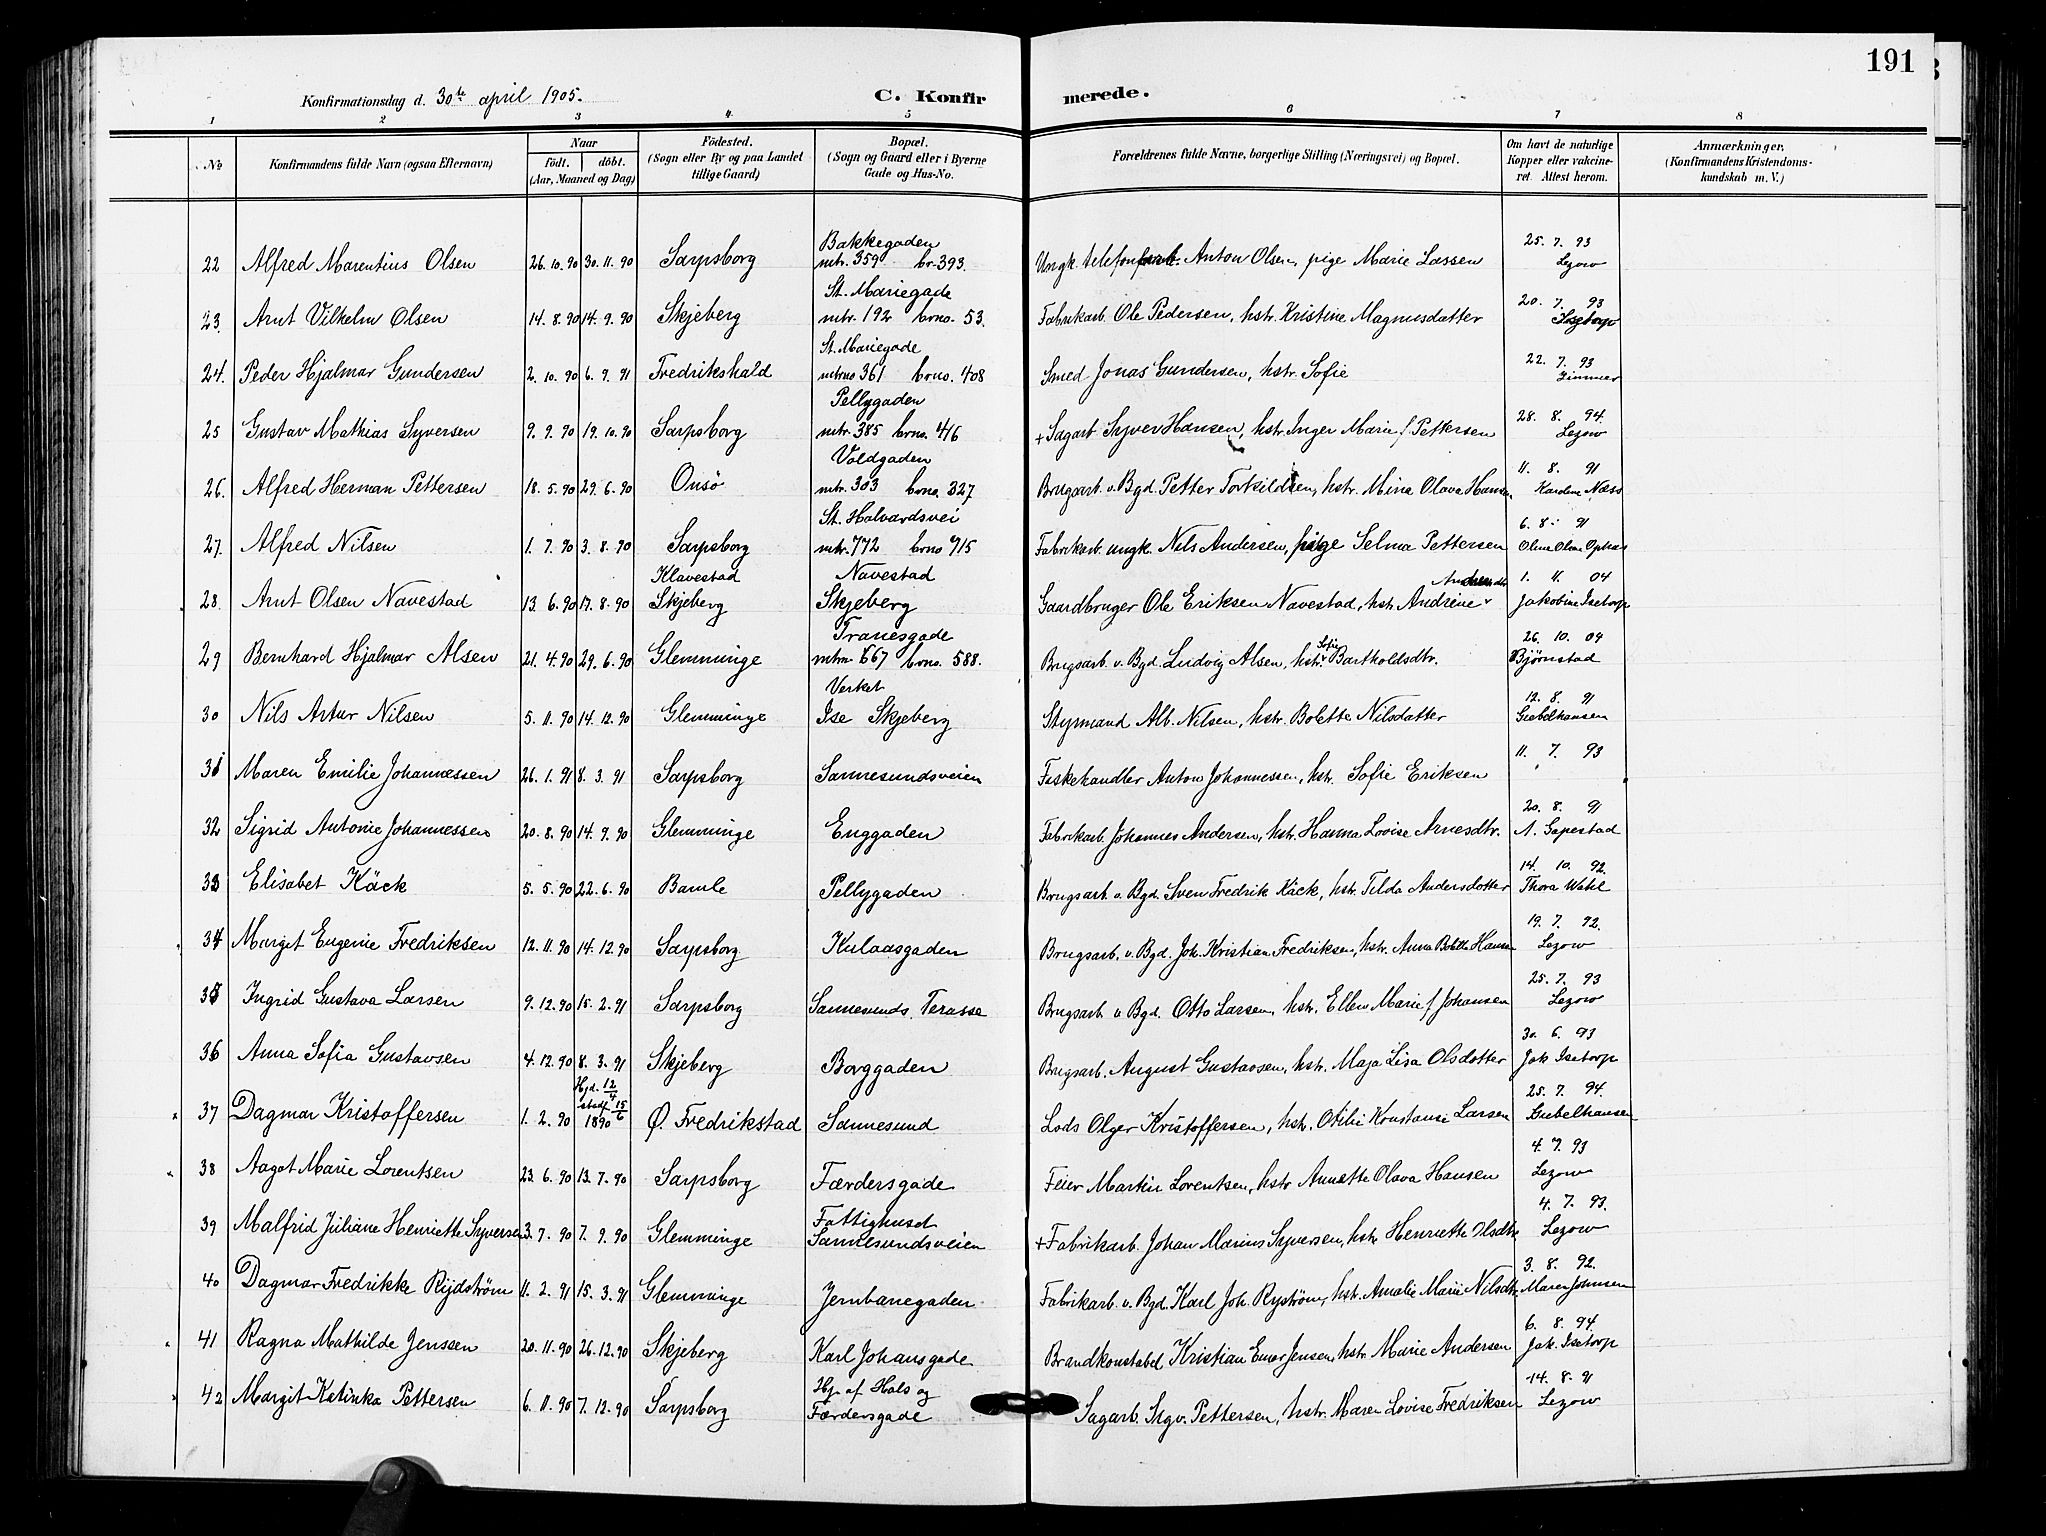 191
Konfirmationsdag d. 30te april 1905. C. Konfirmerede.
1 2 3 4 5 6 7 8
No Konfirmandens fulde Navn (ogsaa Efternavn) Naar födt. döbt. (Aar, Maaned og Dag) Födested. (Sogn eller By og paa Landet tillige Gaard) Bopæl. (Sogn og Gaard eller i Byerne Gade og Hus-No. Forældrenes fulde Navne, borgerlige Stilling (Næringsvei) og Bopæl. Om havt de naturlige Kopper eller vakcineret. Attest herom. Anmærkninger. (Konfirmandens Kristendomskundskab m. V.)
Bakkegaden 25. 7. 93
22 Alfred Marentius Olsen 26. 10. 90 30. 11. 90 Sarpsborg mtr. 359 br. 393. Ungk. telefonarb. Anton Olsen, pige Marie Lassen Lezow
St. Mariegade 20. 7. 93
23. Arnt Vilhelm Olsen 14. 8. 90 14. 9. 90 Skjeberg mtr. 192 brno. 53. Fabrikarb. Ole Pedersen, hstr. Kristine Magnusdatter Isetorp
St. Mariegade 22. 7. 93
24. Peder Hjalmar Gundersen 2. 10. 90 6. 9. 91 Fredrikshald mtrno 361 brno. 408 Smed Jonas Gundersen, hstr. Sofie Zimmer
Pellygaden 28. 8. 94.
25 Gustav Mathias Syversen 9. 9. 90 19. 10. 90 Sarpsborg mtr. 385 brno. 416 + Sagarb. Syver Hansen, hstr. Inger Marie f. Pettersen Lezow
Voldgaden 11. 8. 91
26. Alfred Herman Pettersen 18. 5. 90 29. 6. 90 Onsö mtr. 303 brno. 327 Brugsarb. v. Bgd. Petter Torkildsen, hstr. Mina Olava Hansen Karoline Næss
St. Halvardsvei 6. 8. 91
27. Alfred Nilsen 1. 7. 90 3. 8. 90 Sarpsborg mtr. 772 brno 915 Fabrikarb. ungk. Nils Andersen, pige Selma Pettersen
Klavestad Navestad 1. 11. 04
28. Arnt Olsen Navestad 13. 6. 90 17. 8. 90 Skjeberg Skjeberg Gaardbruger Ole Eriksen Navestad, hstr. Andrine Jakobine Isetorp
Tranesgade 26. 10. 04
29 Bernhard Hjalmar Alsen 21. 4. 90 29. 6. 90 Glemminge mtrn. 667 brno. 588. Brugsarb. v. Bgd. Ludvig Alsen, hstr. Sofie Bartholdsdtr. Bjørnstad
Verket 12. 8. 91
30 Nils Artur Nilsen 5. 11. 90 14. 12. 90 Glemminge Ise Skjeberg Styrmand Alb. Nilsen, hstr. Bolette Nilsdatter Giebelhausen
11. 7. 93
31 Maren Emilie Johannessen 26. 1. 91 8. 3. 91 Sarpsborg Sannesundsveien Fiskehandler Anton Johannessen, hstr. Sofie Eriksen
20. 8. 91
32 Sigrid Antonie Johannessen 20. 8. 90 14. 9. 90 Glemminge Enggaden Fabrikarb. Johannes Andersen, hstr. Hanna Lovise Arnesdtr. A. Gapestad
14. 10. 92.
33 Elisabet Käck 5. 5. 90 22. 6. 90 Bamle Pellygaden Brugsarb. v. Bgd. Sven Fredrik Käck, hstr. Tilda Andersdotter Thora Wahl
19. 7. 92.
34 Margit Eugenie Fredriksen 12. 11. 90 14. 12. 90 Sarpsborg Kulaasgaden Brugsarb. v. Bgd. Joh. Kristian Fredriksen, hstr. Anna Bolette Hansen Lezow
25. 7. 93
35 Ingrid Gustava Larsen 9. 12. 90 15. 2. 91 Sarpsborg Sannesunds. Terasse Brugsarb v Bgd. Otto Larsen, hstr. Ellen Marie f. Johansen Lezow
30. 6. 93
36 Anna Sofia Gustavsen 4. 12. 90 8. 3. 91 Skjeberg Borggaden Brugsarb. August Gustavsen, hstr. Maja Lisa Olsdotter Jak Isetorp
Hjd. 12/4 stadf. 15/6 25. 7. 94.
37 Dagmar Kristoffersen 1. 2. 90 1890 Ø. Fredrikstad Sannesund Lods Olger Kristoffersen, hstr. Otilie Konstanse Larsen Giebelhausen
4. 7. 93
38 Aagot Marie Lorentsen 23. 6. 90 13. 7. 90 Sarpsborg Færdersgade Feier Martin Lorentsen, hstr Annette Olava Hansen Lezow
Fattighusd 4. 7. 93.
39 Malfrid Juliane Henriette Syversen 3. 7. 90 7. 9. 90 Glemminge Sannesundsveien + Fabrikarb. Johan Marius Syversen, hstr Henriette Olsdtr. Lezow
3. 8. 92.
40 Dagmar Fredrikke Rydström 11. 2. 91 15. 3. 91 Glemminge Jernbanegaden Fabrikarb. v. Bgd. Karl Joh. Ryström, hstr. Amalie Marie Nilsdtr. Maren Johnsen
6. 8. 94.
41 Ragna Mathilde Jenssen 20. 11. 90 26. 12. 90 Skjeberg Karl Johansgade Brandkonstabel Kristian Einar Jensen, hstr. Marie Andersen Jak. Isetorp
Hj. af Hals og 14. 8. 91
42 Margit Katinka Pettersen 6. 11. 90 7. 12. 90 Sarpsborg Færdersgade Sagarb. Sigv. Pettersen, hstr. Maren Lovise Fredriksen Lezow